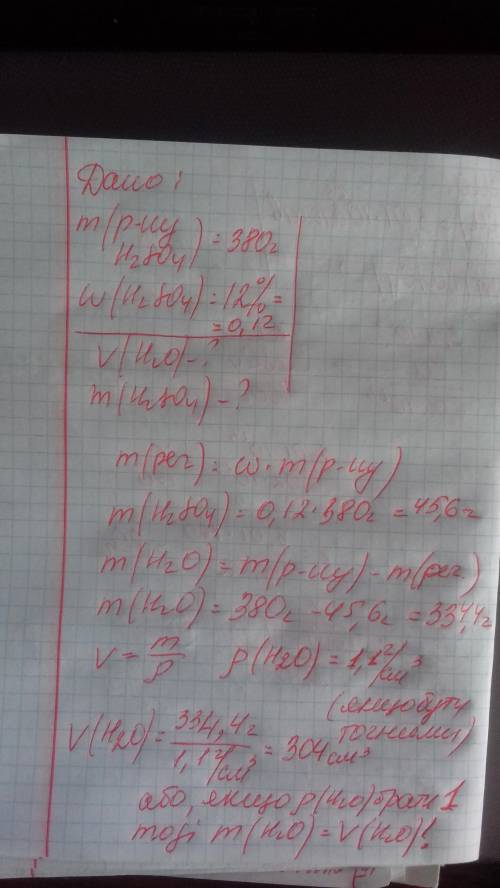 Дано:
m(р-ну
H₂SO₄) = 380г
w(H₂SO₄) = 12% =
= 0,12
V(H₂O) - ?
m(H₂SO₄) - ?
m(реч) = w · m(р-ну)
m(H₂SO₄) = 0,12 · 380г = 45,6г
m(H₂O) = m(р-ну) - m(реч.)
m(H₂O) = 380г - 45,6г = 334,4г
V = m/ρ ρ(H₂O) = 1,1г/см³
(якщо бути
точніами)
V(H₂O) = 334,4г / 1,1г/см³ = 304см³
або, якщо ρ(H₂O) брати 1
тоді m(H₂O) = V(H₂O)!